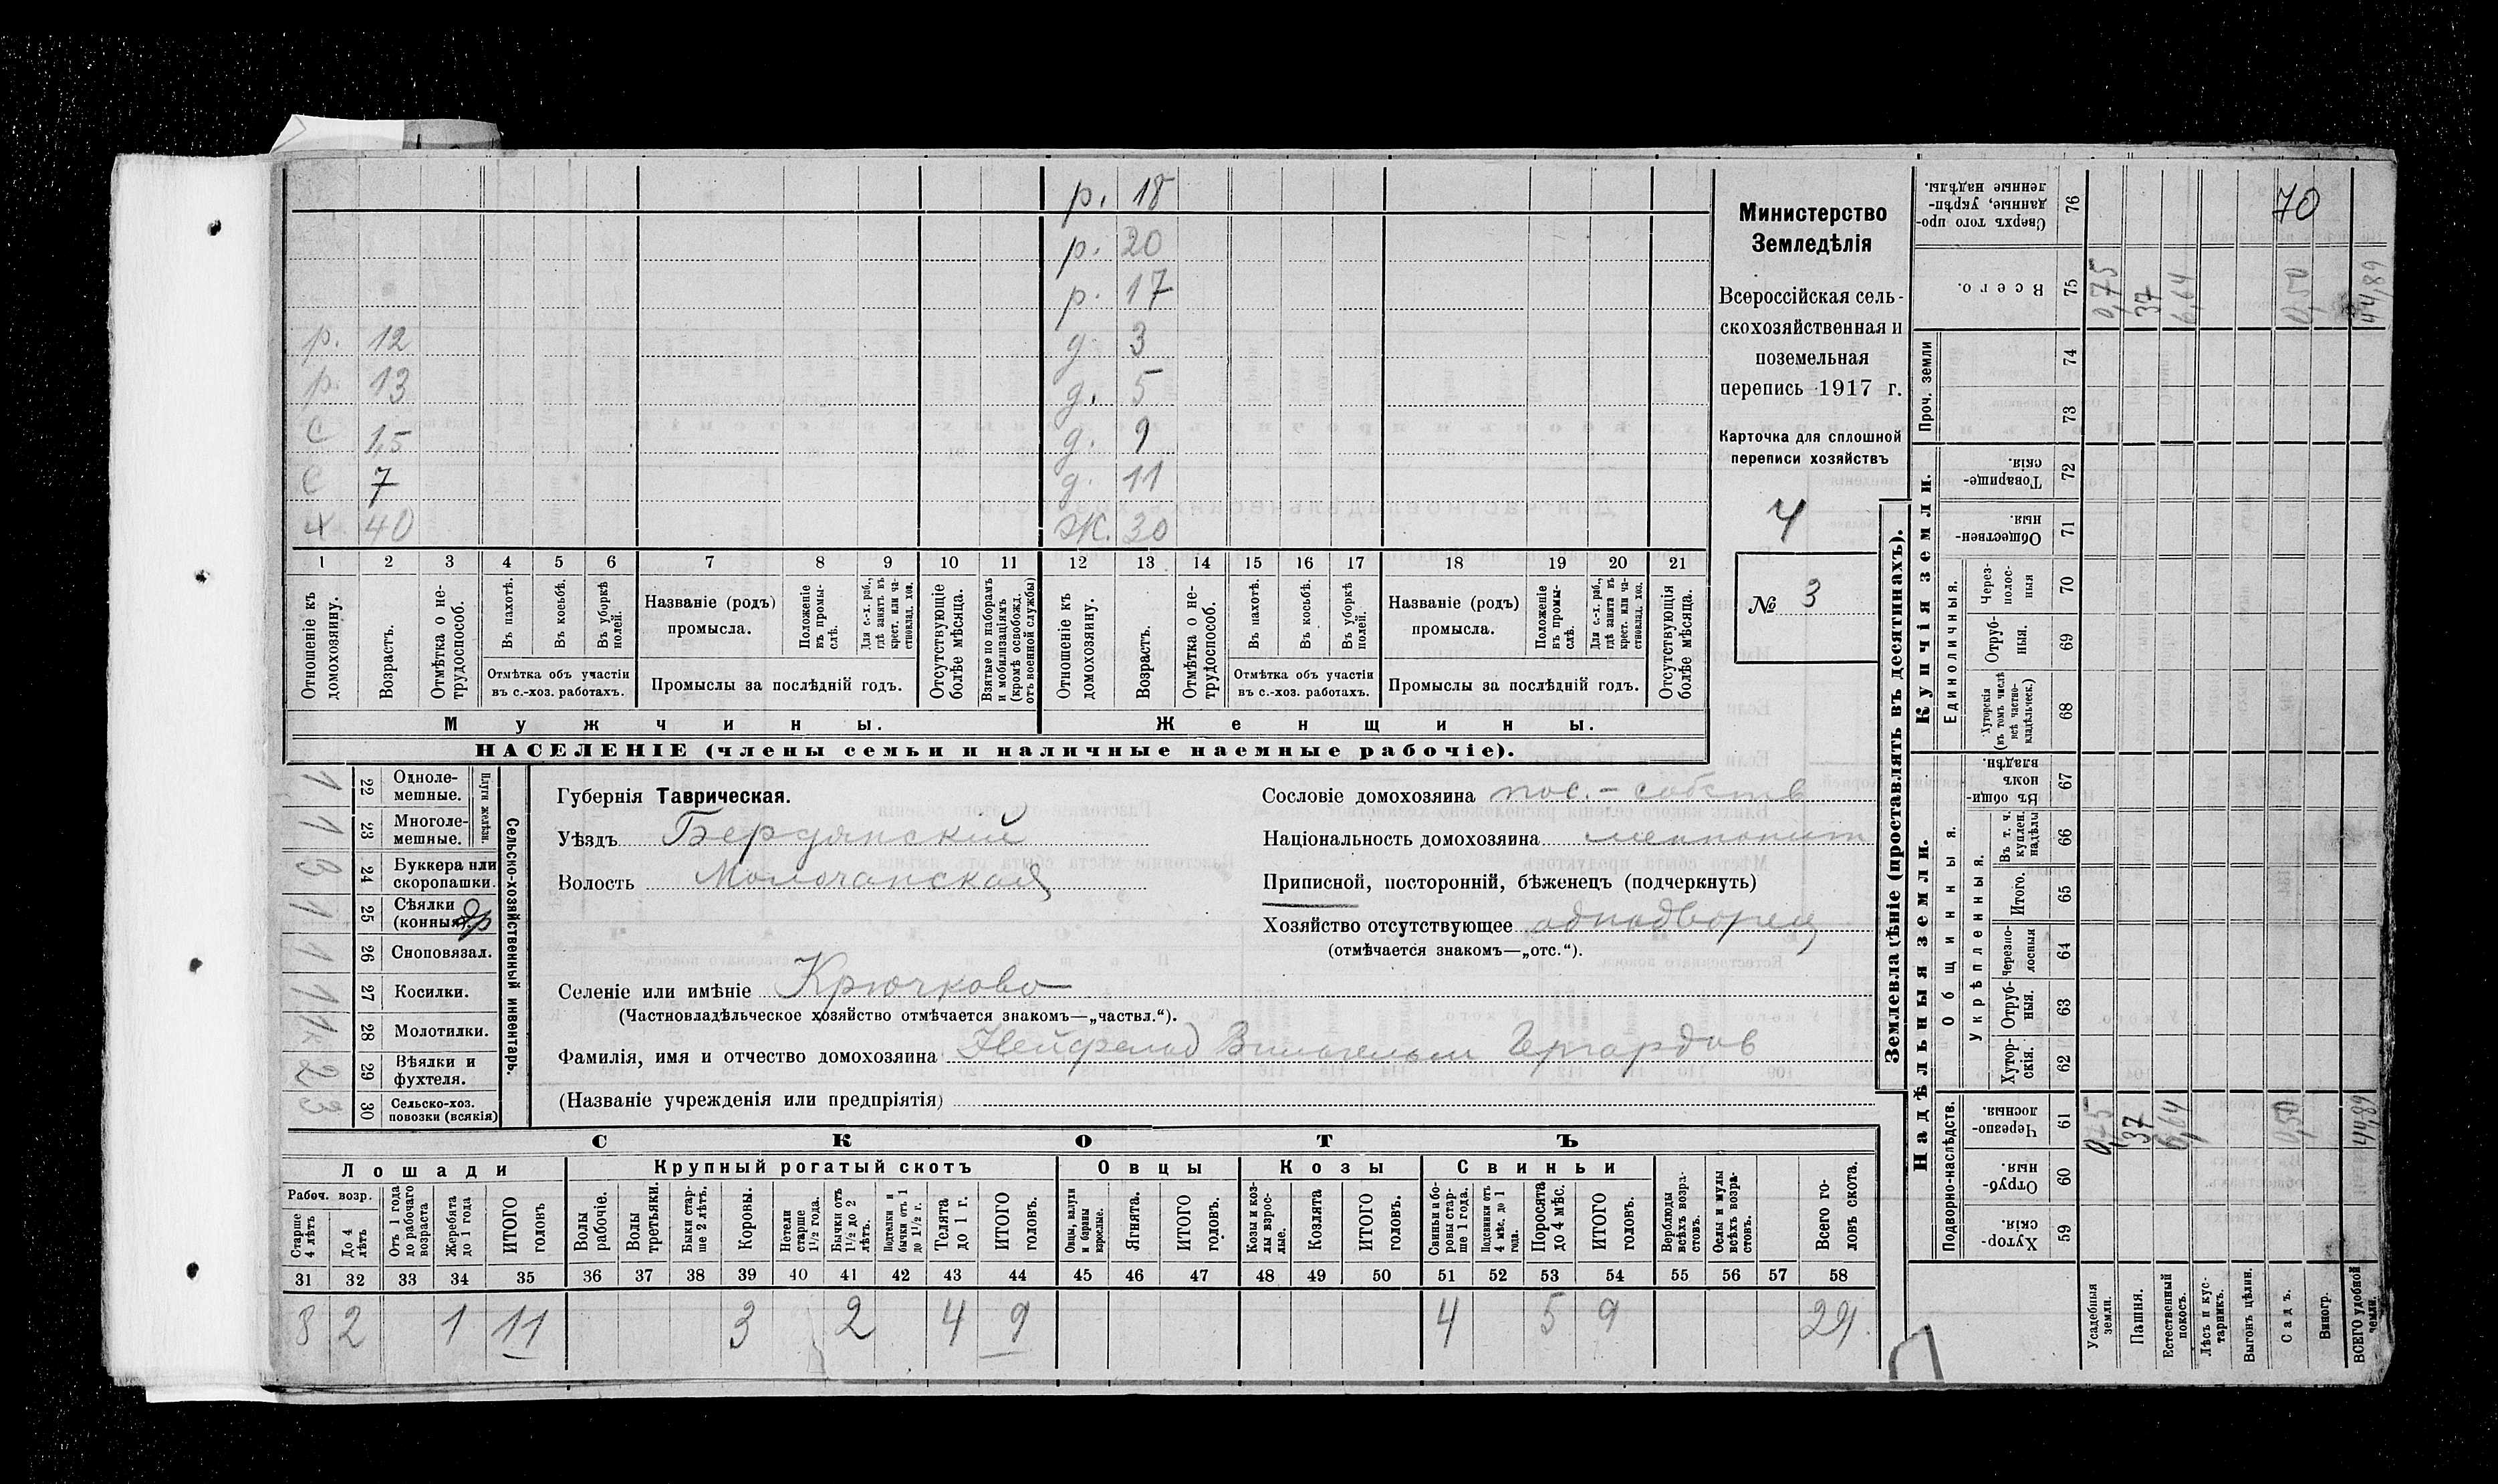 р. 18
р. 20
р. 17
р. 12 д. 3
р. 13 д. 5
с 1,5 д. 9
с 7 д. 11
х 40 Ж. 30
1 2 3 4 5 6 7 8 9 10 11 12 13 14 15 16 17 18 19 20 21
Отношеніе къ домохозяину.
Возрастъ.
Отмѣтка о нетрудоспособ.
Въ пахотѣ.
Въ косьбѣ.
Въ уборкѣ полей.
Отмѣтка объ участіи
въ с.-хоз. работахъ.
Названіе (родъ)
промысла.
Положеніе въ промыслѣ.
Для с.-х. раб., гдѣ занятъ въ крест. или частновлад. хоз.
Промыслы за послѣдній годъ.
Отсутствующіе болѣе мѣсяца.
Взятые по наборамъ и мобилизаціямъ (кромѣ освобожд. отъ военной службы)
Отношеніе къ домохозяину.
Возрастъ.
Отмѣтка о нетрудоспособ.
Въ пахотѣ.
Въ косьбѣ.
Въ уборкѣ полей.
Отмѣтка объ участіи
въ с.-хоз. работахъ.
Названіе (родъ)
промысла.
Положеніе въ промыслѣ.
Для с.-х. раб., гдѣ занята въ крест. или частновлад. хоз.
Промыслы за послѣдній годъ.
Отсутствующія болѣе мѣсяца.
Мужчины. Женщины.
НАСЕЛЕНІЕ (члены семьи и наличные наемные рабочіе).
Министерство
Земледѣлія
Всероссійская сель-
скохозяйственная и
поземельная
перепись 1917 г.
Карточка для сплошной
переписи хозяйствъ
4
№ 3
Сельско-хозяйственный инвентарь.
Плуги желѣзн.
1 22 Одноле-
мешные.
1 23 Многоле-
мешные.
3 24 Буккера или
скоропашки.
1 25 Сѣялки
(конныя). др
1 26 Сноповязал.
1 27 Косилки.
1к 28 Молотилки.
2 29 Вѣялки и
фухтеля.
3 30 Сельско-хоз.
повозки (всякія)
Губернія Таврическая.
Уѣздъ Бердянскій
Волость Молочанская
Селеніе или имѣніе Крючково
(Частновладѣльческое хозяйство отмѣчается знакомъ—„частвл.“).
Фамилія, имя и отчество домохозяина Нейфельд Вильгельм Гергардов
(Названіе учрежденія или предпріятія)
Сословіе домохозяина пос.-собств
Національность домохозяина меннонит
Приписной, посторонній, бѣженецъ (подчеркнуть)
Хозяйство отсутствующее однодворец
(отмѣчается знакомъ—„отс.“).
СКОТЪ
Лошади Крупный рогатый скотъ Овцы Козы Свиньи
Рабоч. возр.
Старше 4 лѣтъ
До 4 лѣтъ
Отъ 1 года до рабочаго возраста
Жеребята до 1 года
ИТОГО головъ
Волы рабочіе.
Волы третьяки.
Быки старше 2 лѣтъ.
Коровы.
Нетели старше 1½ года.
Бычки отъ 1½ до 2 лѣтъ.
Подтелки и бычки отъ 1 до 1½ г.
Телята до 1 г.
ИТОГО головъ.
Овцы, валухи и бараны взрослые.
Ягнята.
ИТОГО головъ.
Козы и козлы взрослые.
Козлята
ИТОГО головъ.
Свиньи и боровы старше 1 года.
Подсвинки отъ 4 мѣс. до 1 года.
Поросята до 4 мѣс.
ИТОГО головъ.
Верблюды всѣхъ возрастовъ.
Ослы и мулы всѣхъ возрастовъ.
Всего головъ скота.
31 32 33 34 35 36 37 38 39 40 41 42 43 44 45 46 47 48 49 50 51 52 53 54 55 56 57 58
8 2 1 11 3 2 4 9 4 5 9 29
Землевладѣніе (проставлять въ десятинахъ).
Надѣльныя земли. Купчія земли. Проч. земли
Подворно-наслѣдств.
Общинныя.
Укрѣпленныя.
Единоличныя.
Сверхъ того проданные, укрѣпленные надѣлы. 76 70
Всего. 75 0,75 37 6,64 0,50 44,89
74
73
Товарищескія. 72
Общественныя. 71
Черезполосныя 70
Отрубныя. 69
Хуторскія (въ томъ числѣ всѣ частновладѣльческ.) 68
Въ общинномъ владѣн. 67
Въ т. ч. куплен. надѣлы 66
Итого. 65
Черезполосныя 64
Отрубныя. 63
Хуторскія. 62
Черезполосныя. 61 0,75 37 6,64 0,50 44,89
Отрубныя. 60
Хуторскія. 59
Усадебныя земли.
Пашня.
Естественный покосъ.
Лѣсъ и кустарникъ.
Выгонъ цѣлин.
Садъ.
Виногр.
ВСЕГО удобной земли.